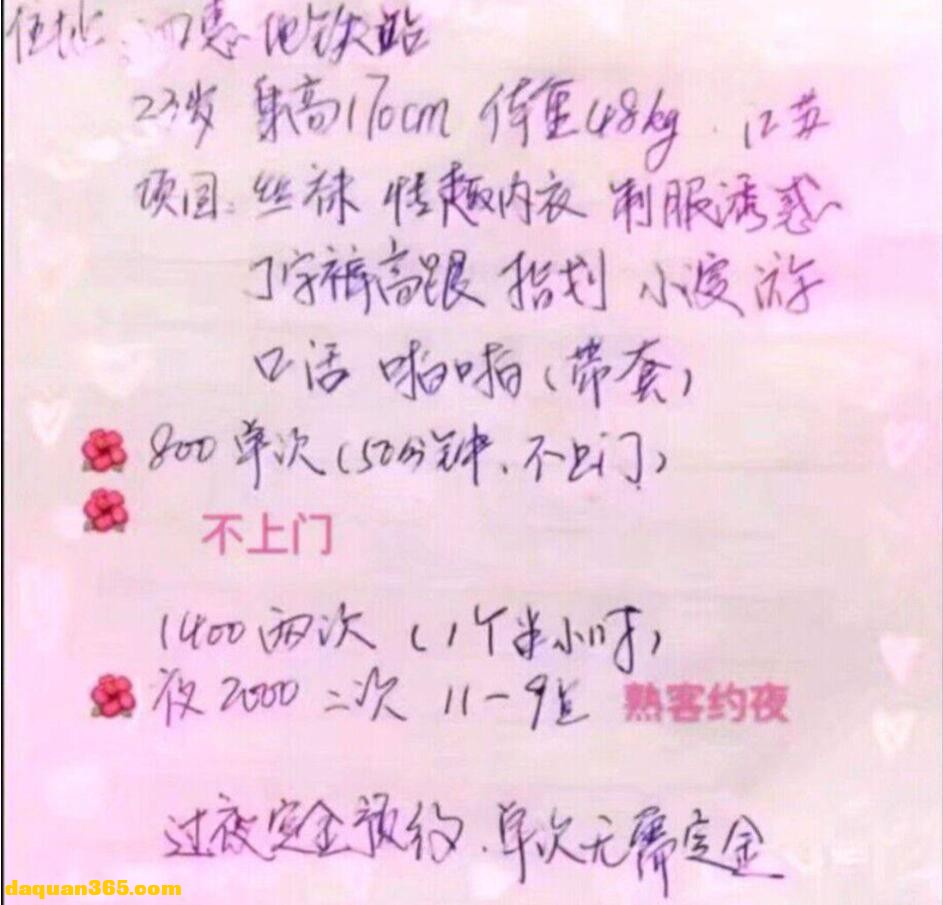 住址：四惠地铁站
23岁 身高170cm 体重48kg. 江苏
项目：丝袜 情趣内衣 制服诱惑
丁字裤高跟 指划 小漫游
口活 啪啪（带套）
800单次（50分钟、不上门）
不上门
1400两次（1个半小时）
夜2000 二次 11-9点 熟客约夜
过夜定金预约、单次无需定金
daquan365.com